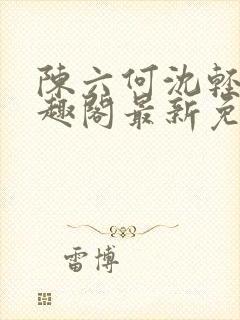 陳六何沈輕
趣閣最新免
雷博